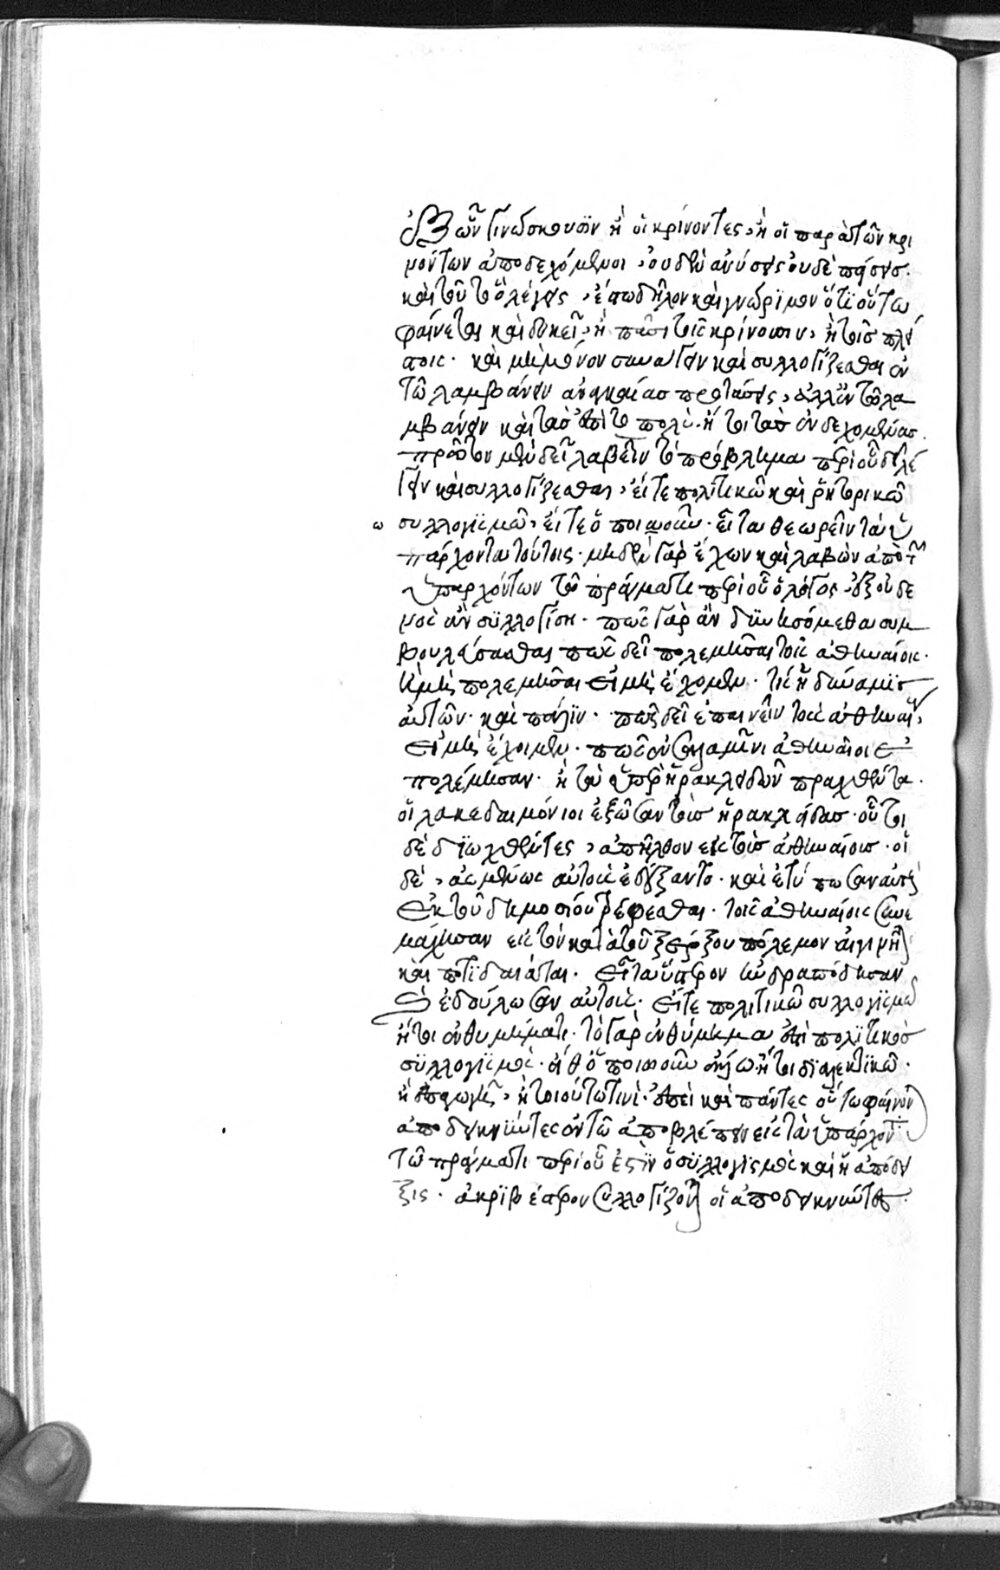 ὧν γινώσκουσιν ἢ οἱ κρίνοντες, ἢ οἱ παρὰ τῶν κρι
νόντων ἀποδεχόμενοι, οὐδὲν ἀνύσεις οὐδὲ πείσεις.
καὶ τοῦτο ὃ λέγεις, ἔσται δῆλον καὶ γνώριμον ὅτι οὕτω
φαίνεται καὶ δοκεῖ, ἢ πᾶσι τοῖς κρίνουσιν, ἢ τοῖς πλεί
στοις. καὶ μὴ μόνον συνάγειν καὶ συλλογίζεσθαι ἐν
τῷ λαμβάνειν ἀναγκαίας προτάσεις, ἀλλ' ἐν τῷ λα
μβάνειν καὶ τὰς ἐπὶ τὸ πολὺ. ἤτοι τὰς ἐνδεχομένας.
πρῶτον μὲν δεῖ λαβεῖν τὸ πρόβλημα περὶ οὗ δεῖ λέ
γειν καὶ συλλογίζεσθαι, εἴτε πολιτικῷ καὶ ῥητορικῷ
ω συλλογισμῷ, εἴτε ὁποιῳοῦν. εἶτα θεωρεῖν τὰ ὑ
πάρχοντα τούτοις. μηδὲν γὰρ ἔχων καὶ λαβὼν ἀπὸ τῶν
ὑπαρχόντων τῷ πράγματι περὶ οὗ ὁ λόγος, ἐξ οὐδε
νὸς ἂν συλλογίσῃ. πῶς γὰρ ἂν δυνησόμεθα συμ
βουλεύσασθαι πῶς δεῖ πολεμῆσαι τοῖς ἀθηναίοις.
ἢ μὴ πολεμῆσαι εἰ μὴ ἔχομεν. τίς ἡ δύναμις
αὐτῶν. καὶ πάλιν. πῶς δεῖ ἐπαινεῖν τοὺς ἀθηναί,
εἰ μὴ ἔχοιμεν. πῶς ἐν σαλαμῖνι ἀθηναῖοι ἐ
πολέμησαν. ἢ τὰ ὑπὲρ ἡρακλειδῶν πραχθέντα.
οἱ λακεδαιμόνιοι ἐξῶσαν τοὺς ἡρακλείδας. οὗτοι
δὲ διωχθέντες, ἀπῆλθον εἰς τοὺς ἀθηναίους. οἱ
δὲ, ἀσμένως αὐτοὺς ἐδέξαντο. καὶ ἐτύπωσαν αὐτοὺς
ἐκ τοῦ δημοσίου τρέφεσθαι. τοῖς ἀθηναίοις συνε
μάχησαν εἰς τὸν κατὰ τοῦ ξέρξου πόλεμον αἰγινῆται
καὶ ποτιδαιάται. εἶτα ὕστερον ἠνδραπόδησαν
καὶ ἐδούλωσαν αὐτούς. εἴτε πολιτικῷ συλλογισμῷ
ἤτοι ἐνθυμήματι. τὸ γὰρ ἐνθύμημα ἐστὶ πολιτικὸς
συλλογισμός. εἴθ' ὁποιῳοῦν ἄλλῳ ἤτοι διαλεκτικῷ.
ἢ ἐπαγωγῇ, ἢ τοιούτῳ τινί. ἐπεὶ καὶ πάντες οὕτω φαίνονται
ἀποδεικνύντες ἐν τῷ ἀποβλέπειν εἰς τὰ ὑπάρχοντα
τῷ πράγματι περὶ οὗ ἐστὶν ὁ συλλογισμὸς καὶ ἡ ἀπόδει
ξις. ἀκριβέστερον συλλογίζονται οἱ ἀποδεικνύντες.